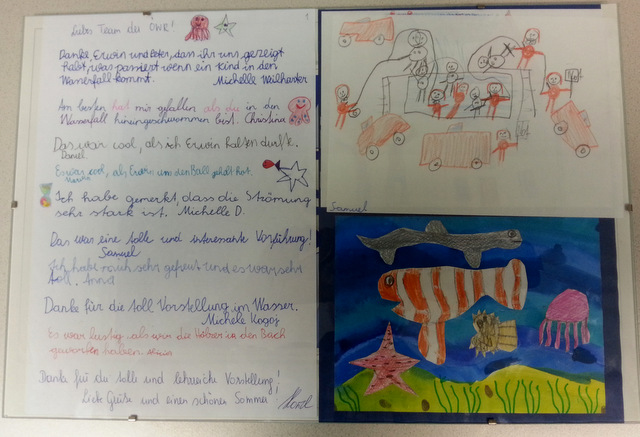 Liebes Team der ÖWR!
Danke Erwin und Peter, dass ihr uns gezeigt
habt, was passiert wenn ein Kind in den
Wasserfall kommt. Michelle Weilharter
Am besten hat mir gefallen als du in den
Wasserfall hineingeschwommen bist. Christina
Das war cool, als ich Erwin halten durfte.
Daniel
Es war cool, als Erwin um den Ball geholt hat.
Ich habe gemerkt, dass die Strömung
sehr stark ist. Michelle D.
Das war eine tolle und interesante Vorführung!
Samuel
Ich habe mich sehr gefreut und es war sehr
toll. Anna
Danke für die toll Vorstellung im Wasser.
Michele Kogoj
Es war lustig als wir die Hölzer in den Bach
geworfen haben.
Danke für die tolle und lehrreiche Vorstellung!
Liebe Grüße und einen schönen Sommer
Samuel